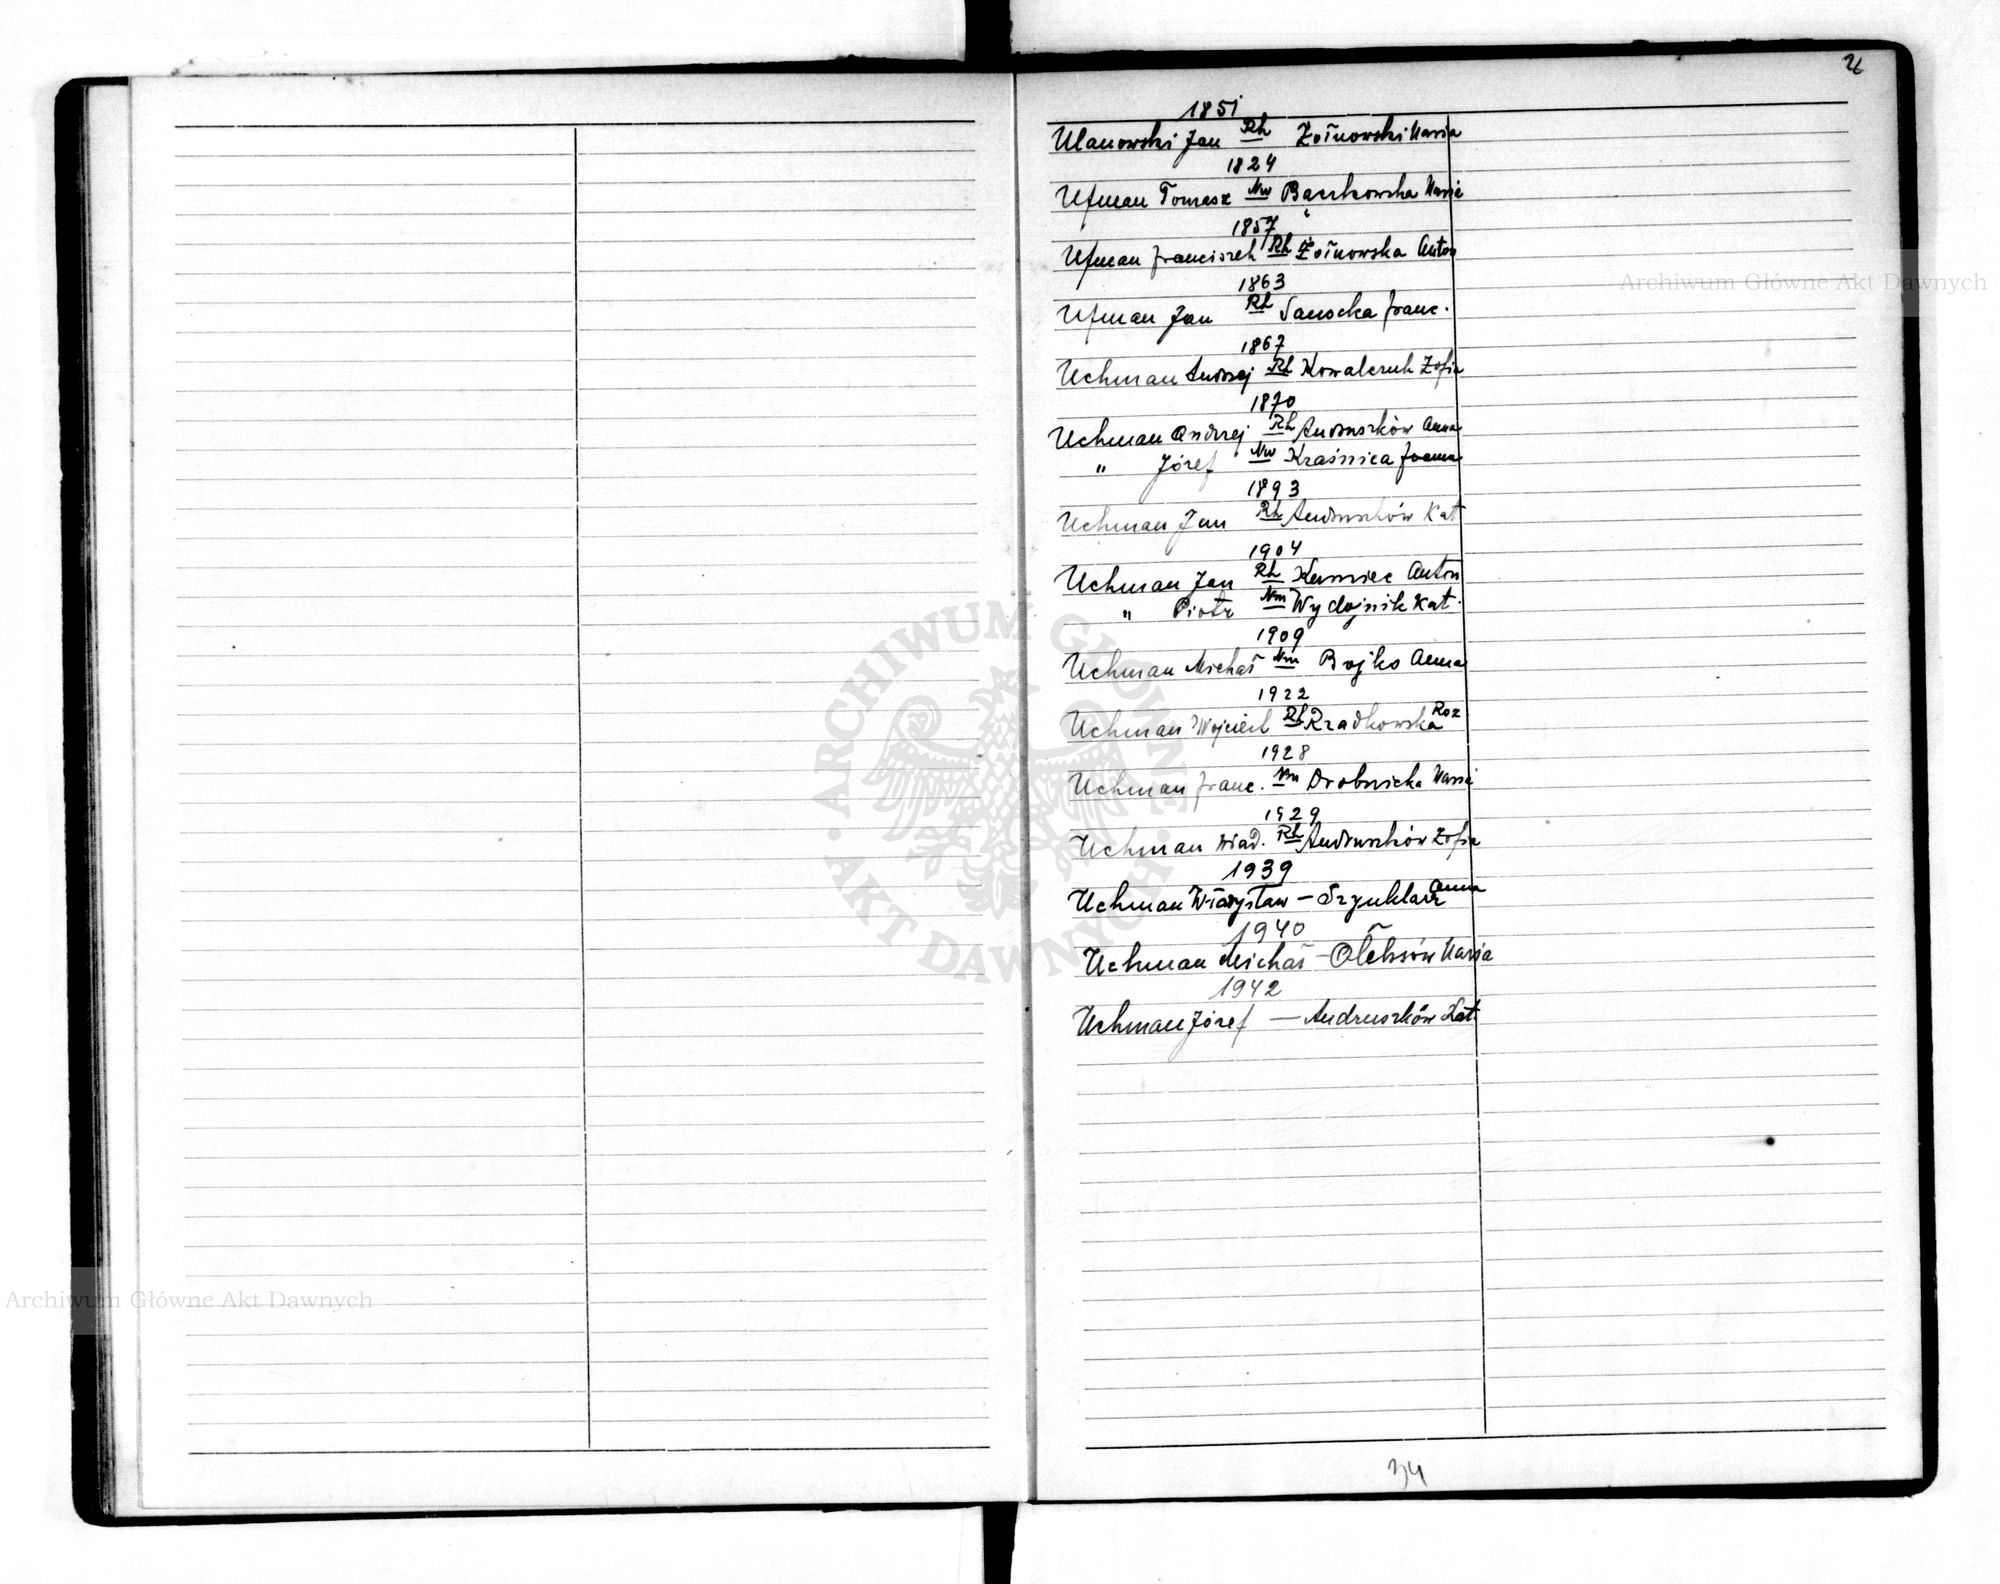 U
1851
Ulanowski Jan Rh Żołnowski Maria
1824
Ufman Tomasz Nw Baczkowska Maria
1857
Ufman Franciszek Rh Żołnowska Anton
1863
Ufman Jan Rh Sanocka Franc.
1867
Uchman Andrzej Rh Kowalczuk Zofia
1870
Uchman Andrzej Rh Andruszków Anna
" Józef Nw Kraśnica
1893
Uchman Jan Rh Andruszków Kat
1904
Uchman Jan Rh Anton
" Piotr Nm Wydojnik Kat.
1909
Uchman Michał Nm Bojko Anna
1922
Uchman Wojciech Rh Rzadkowska Roz
1928
Uchman Franc. Nm Drobnicka Maria
1929
Uchman Wład. Rh Andruszków Zofia
1939
Uchman Władysław - Anna
1940
Uchman Michał - Oleksów Maria
1942
Uchman Józef - Andruszków Kat.
34
Archiwum Główne Akt Dawnych
Archiwum Główne Akt Dawnych
ARCHIWUM GŁÓWNE · AKT DAWNYCH ·